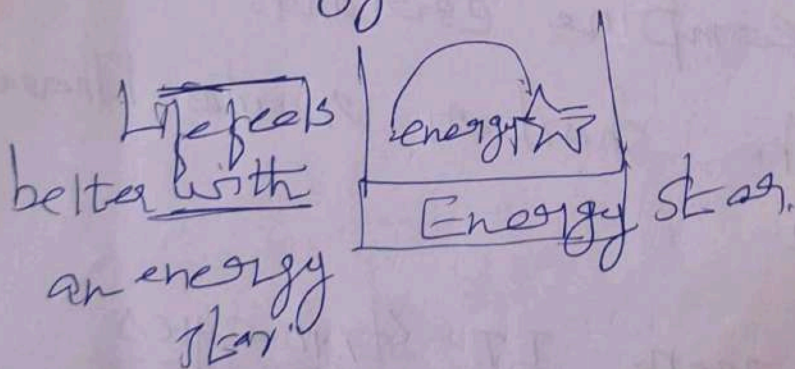 Life feels
better with
an energy
star.
energy
Energy Star.